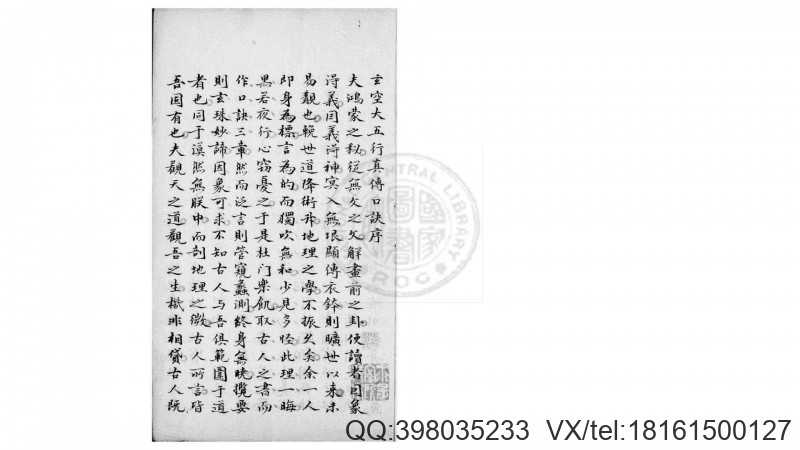 玄空大五行真傳口訣序
夫鴻蒙之秘從無文之文解畫前之卦使讀者因象
得義因義得神冥入無垠顯傳衣鉢則曠世以來未
易覯也輓世道降術升地理之學不振久矣余一人
即身為標言為的而獨吹無和少見多怪此理一晦
黑若夜行心竊憂之于是杜门樂飢取古人之書而
作口訣三章然而泛言則管窺蠡測終身無曉攬要
則玄珠妙諦因象可求不知古人与吾俱範圍于道
者也同于漠然無朕中而剖地理之微古人所言皆
吾固有也夫觀天之道觀吾之生橛非相貸古人既
CENTRAL LIBRARY
ROC
QQ:398035233 VX/tel:18161500127